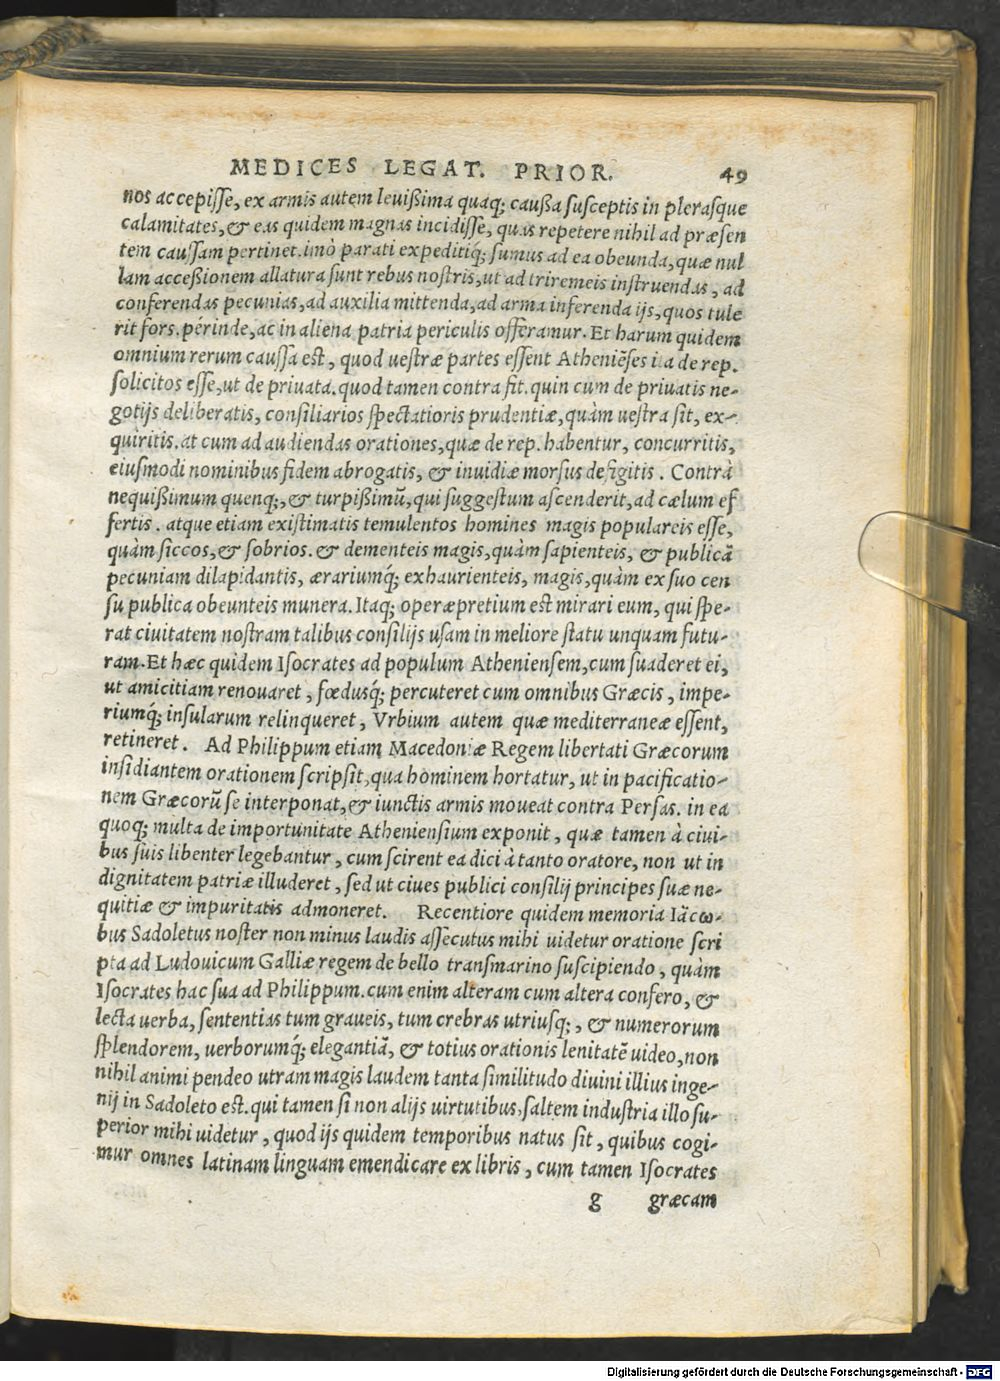 MEDICES LEGAT. PRIOR. 49
nos accepisse, ex armis autem leuißima quaq; caußa susceptis in plerasque
calamitates, & eas quidem magnas incidisse, quas repetere nihil ad præsen
tem caussam pertinet. imò parati expeditiq́; sumus ad ea obeunda, quæ nul
lam acceßionem allatura sunt rebus nostris, ut ad triremeis instruendas, ad
conferendas pecunias, ad auxilia mittenda, ad arma inferenda ijs, quos tule
rit fors. perinde, ac in aliena patria periculis offeramur. Et harum quidem
omnium rerum caussa est, quod uestræ partes essent Atheniẽses ita de rep.
solicitos esse, ut de priuata. quod tamen contra fit. quin cùm de priuatis ne-
gotijs deliberatis, consiliarios spectatioris prudentiæ, quàm uestra sit, ex-
quiritis. at cum ad audiendas orationes, quæ de rep. habentur, concurritis,
eiusmodi nominibus fidem abrogatis, & inuidiæ morsus defigitis. Contrà
nequißimum quenq;, & turpißimũ, qui suggestum ascenderit, ad cælum ef
fertis. atque etiam existimatis temulentos homines magis populareis esse,
quàm siccos, & sobrios. & dementeis magis, quàm sapienteis, & publicã
pecuniam dilapidantis, ærariumq́; exhaurienteis, magis, quàm ex suo cen
su publica obeunteis munera. Itaq; operæpretium est mirari eum, qui spe-
rat ciuitatem nostram talibus consilijs usam in meliore statu unquam futu-
ram. Et hæc quidem Isocrates ad populum Atheniensem, cum suaderet ei,
ut amicitiam renouaret, fœdusq́; percuteret cum omnibus Græcis, impe-
riumq́; insularum relinqueret, Vrbium autem quæ mediterraneæ essent,
retineret. Ad Philippum etiam Macedoniæ Regem libertati Græcorum
insidiantem orationem scripsit, qua hominem hortatur, ut in pacificatio-
nem Græcorũ se interponat, & iunctis armis moueat contra Persas. in ea
quoq; multa de importunitate Atheniensium exponit, quæ tamen à ciui-
bus suis libenter legebantur, cum scirent ea dici à tanto oratore, non ut in
dignitatem patriæ illuderet, sed ut ciues publici consilij principes suæ ne-
quitiæ & impuritatis admoneret. Recentiore quidem memoria Iäcω-
bus Sadoletus noster non minus laudis assecutus mihi uidetur oratione scri
pta ad Ludouicum Galliæ regem de bello transmarino suscipiendo, quàm
Isocrates hac sua ad Philippum. cum enim alteram cum altera confero, &
lecta uerba, sententias tum graueis, tum crebras utriusq;, & numerorum
splendorem, uerborumq́; elegantiã, & totius orationis lenitatẽ uideo, non
nihil animi pendeo utram magis laudem tanta similitudo diuini illius inge-
nij in Sadoleto est. qui tamen si non alijs uirtutibus, saltem industria illo su-
perior mihi uidetur, quod ijs quidem temporibus natus sit, quibus cogi-
mur omnes latinam linguam emendicare ex libris, cum tamen Isocrates
g græcam
Digitalisierung gefördert durch die Deutsche Forschungsgemeinschaft - DFG